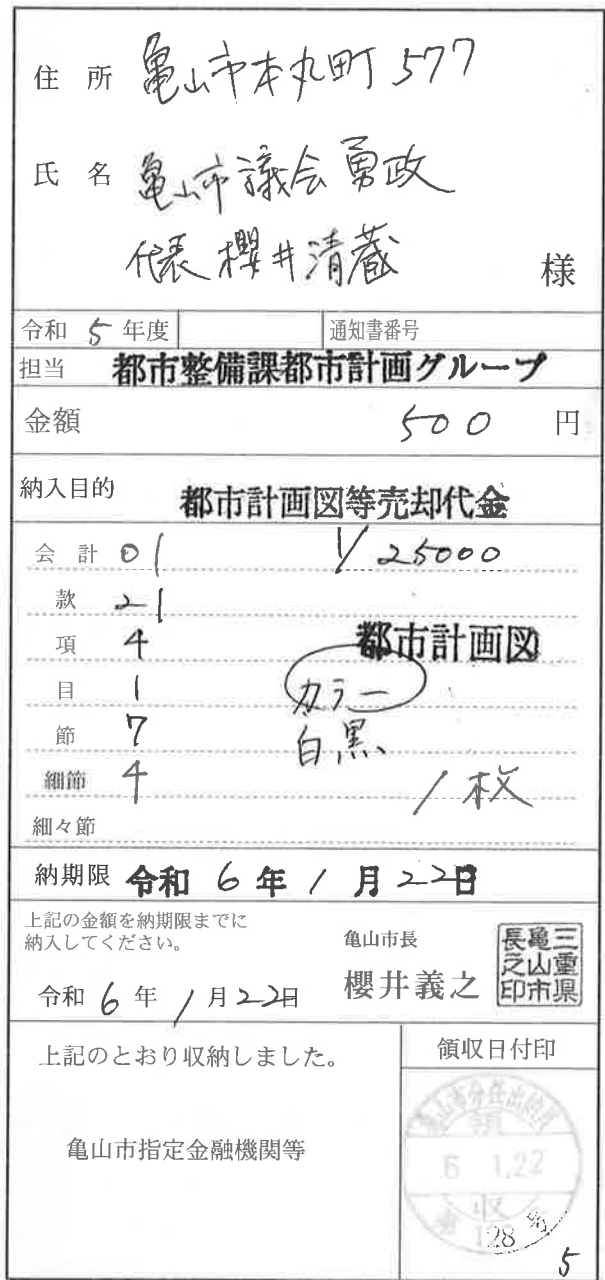 住所 亀山市本丸町577
氏名 亀山市議会勇政
代表 櫻井清蔵 様
令和 5 年度 通知書番号
担当 都市整備課都市計画グループ
金額 500 円
納入目的 都市計画図等売却代金
会計 01 1/25000
款 21
項 4 都市計画図
目 1 カラー
節 7 白黒
細節 4 1枚
細々節
納期限 令和 6 年 1 月 22日
上記の金額を納期限までに
納入してください。
亀山市長
令和 6 年 1 月 22日 櫻井義之
三重県
亀山市
長之印
上記のとおり収納しました。
領収日付印
亀山市指定金融機関等
亀山市分任出納員
領
6 1.22
収
128
5